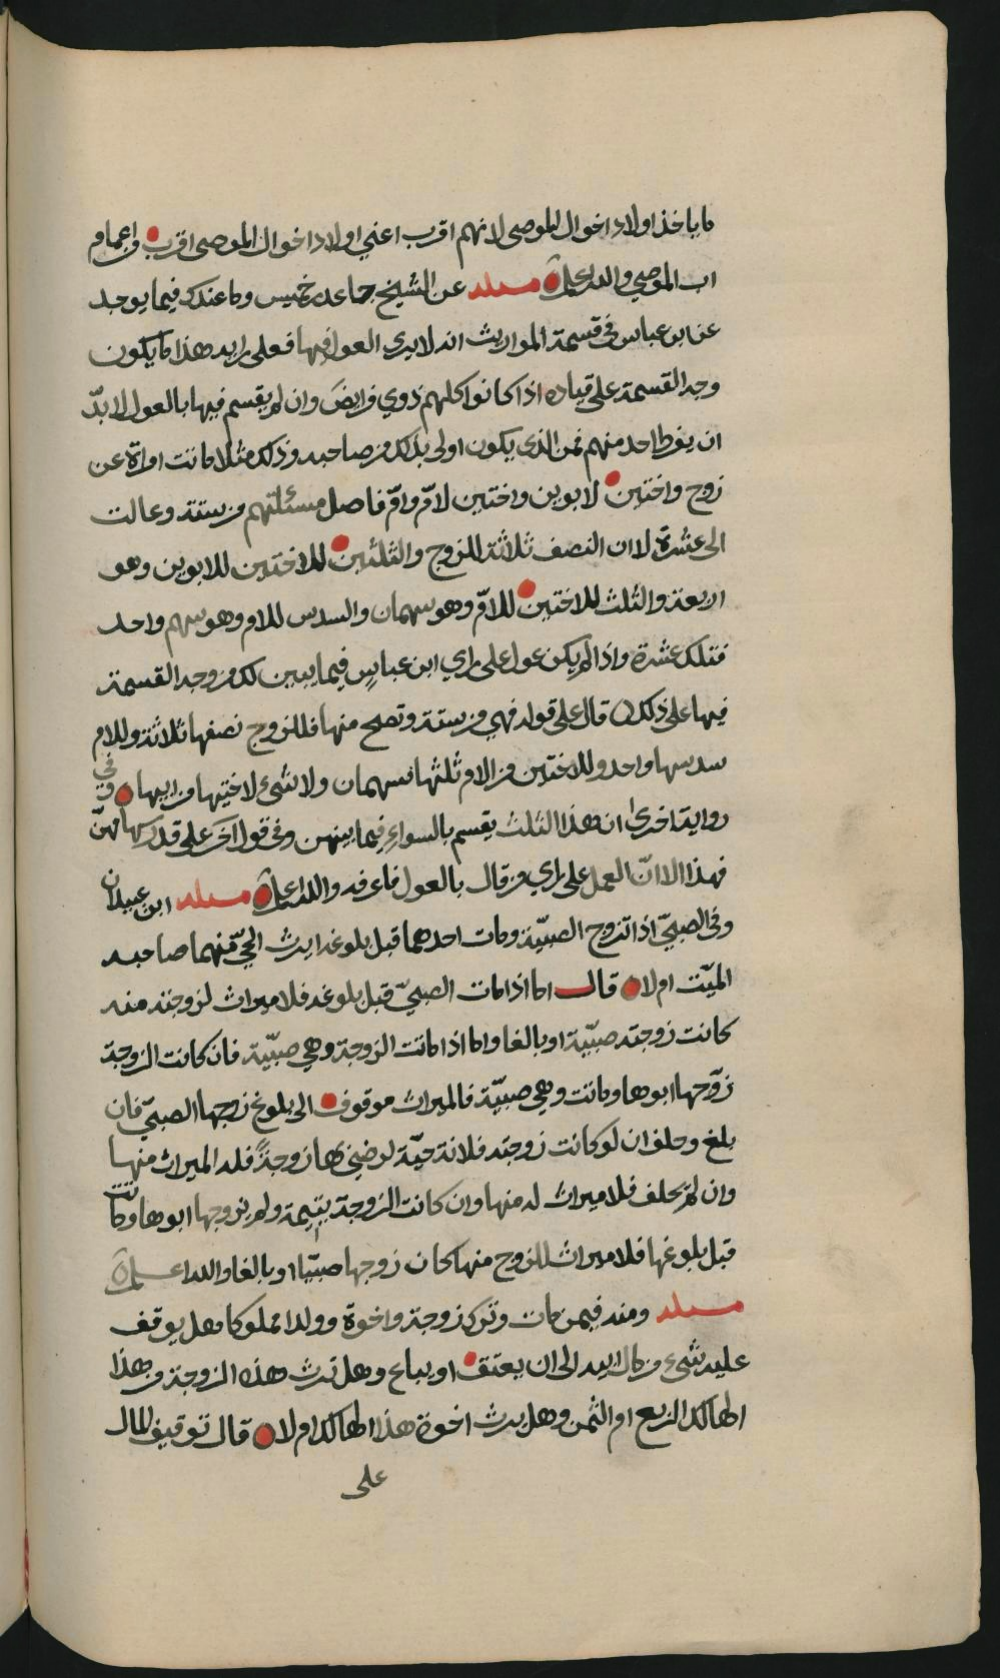 ما ياخذ اولاد اخوال الموصي لانهم اقرب اعني اولاد اخوال الموصي اقرب من اعمام
اب الموصي والله اعلم مسئلة عن الشيخ جاعد بن خميس وما عندك فيما يوجد
عن ابن عباس في قسمة المواريث انه لا يرى العول فيها فعلى رايه هذا ما يكون
وجه القسمة على قياده اذا كانوا كلهم ذوي فرائض وان لم يقسم فيها بالعول لا بدّ
ان يفرط احد منهم فمن الذي يكون اولى بذلك من صاحبه وذلك مثلا ماتت امراة عن
زوج واختين لابوين واختين لامّ وامّ فاصل مسئلتهم من ستة وعالت
الى عشرة لان النصف ثلاثة للزوج والثلثين للاختين للابوين وهو
اربعة والثلث للاختين للامّ وهو سهمان والسدس للام وهو سهم واحد
فتلك عشرة واذا لم يكن عول على راي ابن عباس فيما يبين لك من وجه القسمة
فيها على ذلك قال على قوله فهي من ستة وتصح منها فللزوج نصفها ثلاثة وللام
سدسها واحد وللاختين من الام ثلثها سهمان ولا شيء لاختيها من ابيها وفي
رواية اخرى ان هذا الثلث يقسم بالسواء فيما بينهن وفي قول اخر على قدر سهامهنّ
فهذا الا انّ العمل على راي من قال بالعول فاعرفه والله اعلم مسئلة ابن عبيدان
وفي الصبيّ اذا تزوج الصبيّة ومات احدهما قبل بلوغه ايرث الحيّ منهما صاحبه
الميّت ام لا قال اما اذا مات الصبيّ قبل بلوغه فلا ميراث لزوجته منه
كانت زوجته صبيّة او بالغا واما اذا ماتت الزوجة وهي صبيّة فان كانت الزوجة
زوّجها ابوها وماتت وهي صبيّة فالميراث موقوف الى بلوغ زوجها الصبيّ فان
بلغ وحلف ان لو كانت زوجته فلانة حيّة لرضي بها زوجةً فله الميراث منها
وان لم يحلف فلا ميراث له منها وان كانت الزوجة يتيمة ولم يزوجها ابوها وماتت
قبل بلوغها فلا ميراث للزوج منها كان زوجها صبيّا او بالغا والله اعلم
مسئلة ومنه فيمن مات وترك زوجة واخوة وولدا مملوكا هل يوقف
عليه شيء من مال ابيه الى ان يعتق او يباع وهل ترث هذه الزوجة من هذا
الهالك الربع او الثمن وهل يرث اخوة هذا الهالك ام لا قال توقيف المال
على